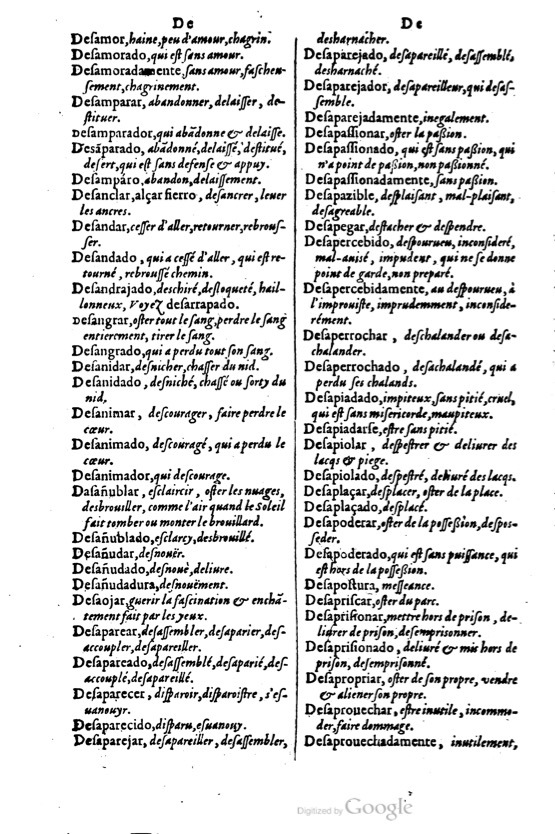 De
Desamor, haine, peu d'amour, chagrin.
Desamorado, qui est sans amour.
Desamoradamente, sans amour, faschen-
sement, chagrinement.
Desamparar, abandonner, delaisser, de-
stituer.
Desamparador, qui abãdonne & delaisse.
Desãparado, abãdonné, delaissé, destitué,
desert, qui est sans defense & appuy.
Desamparo, abandon, delaissement.
Desanclar, alçar fierro, desancrer, leuer
les ancres.
Desandar, cesser d'aller, retourner, rebrous-
ser.
Desandado, qui a cessé d'aller, qui est re-
tourné, rebroussé chemin.
Desandrajado, deschiré, desloqueté, hail-
lonneux, Voyez desarrapado.
Desangrar, oster tout le sang, perdre le sang
entierement, tirer le sang.
Desangrado, qui a perdu tout son sang.
Desanidar, desnicher, chasser du nid.
Desanidado, desniché, chassé ou sorty du
nid.
Desanimar, descourager, faire perdre le
cœur.
Desanimado, descouragé, qui a perdu le
cœur.
Desanimador, qui descourage.
Dasañublar, esclaircir, oster les nuages,
desbrouiller, comme l'air quand le Soleil
fait tomber ou monter le brouillard.
Desañublado, esclarcy, desbrouillé.
Desañudar, desnouër.
Desañudado, desnoué, deliure.
Desañudadura, desnouëment.
Desaojar, guerir la fascination & enchã-
tement fait par les yeux.
Desaparear, desassembler, desaparier, des-
accoupler, desapareiller.
Desapareado, desassemblé, desaparié, des-
accouplé, desapareillé.
Desaparecer, disparoir, disparoistre, s'es-
uanouyr.
Desaparecido, disparu, esuanouy.
Desaparejar, desapareiller, desassembler,
De
desharnacher.
Desaparejado, desapareillé, desassemblé,
desharnaché.
Desaparejador, desapareilleur, qui desas-
semble.
Desaparejadamente, inegalement.
Desapassionar, oster la passion.
Desapassionado, qui est sans passion, qui
n'a point de passion, non passionné.
Desapassionadamente, sans passion.
Desapazible, desplaisant, mal-plaisant,
desagreable.
Desapegar, destacher & despendre.
Desapercebido, despourueu, inconsideré,
mal-auisé, impudent, qui ne se donne
point de garde, non preparé.
Desapercebidamente, au despourueu, à
l'improuiste, imprudemment, inconside-
rément.
Desaperrochar, deschalander ou desa-
chalander.
Desaperrochado, desachalandé, qui a
perdu ses chalands.
Desapiadado, impiteux, sans pitié, cruel,
qui est sans misericorde, maupiteux.
Desapiadarse, estre sans pitié.
Desapiolar, despestrer & deliurer des
lacqs & piege.
Desapiolado, despestré, deliuré des lacqs.
Desaplaçar, desplacer, oster de la place.
Desaplaçado, desplacé.
Desapoderar, oster de la possession, despos-
seder.
Desapoderado, qui est sans puissance, qui
est hors de la possession.
Desapostura, messeance.
Desapriscar, oster du parc.
Desaprisionar, mettre hors de prison, de-
liurer de prison, desemprisonner.
Desaprisionado, deliuré & mis hors de
prison, desemprisonné.
Desapropriar, oster de son propre, vendre
& aliener son propre.
Desaprouechar, estre inutile, incommo-
der, faire dommage.
Desaprouechadamente, inutilement,
Digitized by Google